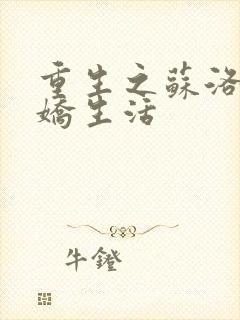 重生之蘇洛
嬌生活
牛鐙